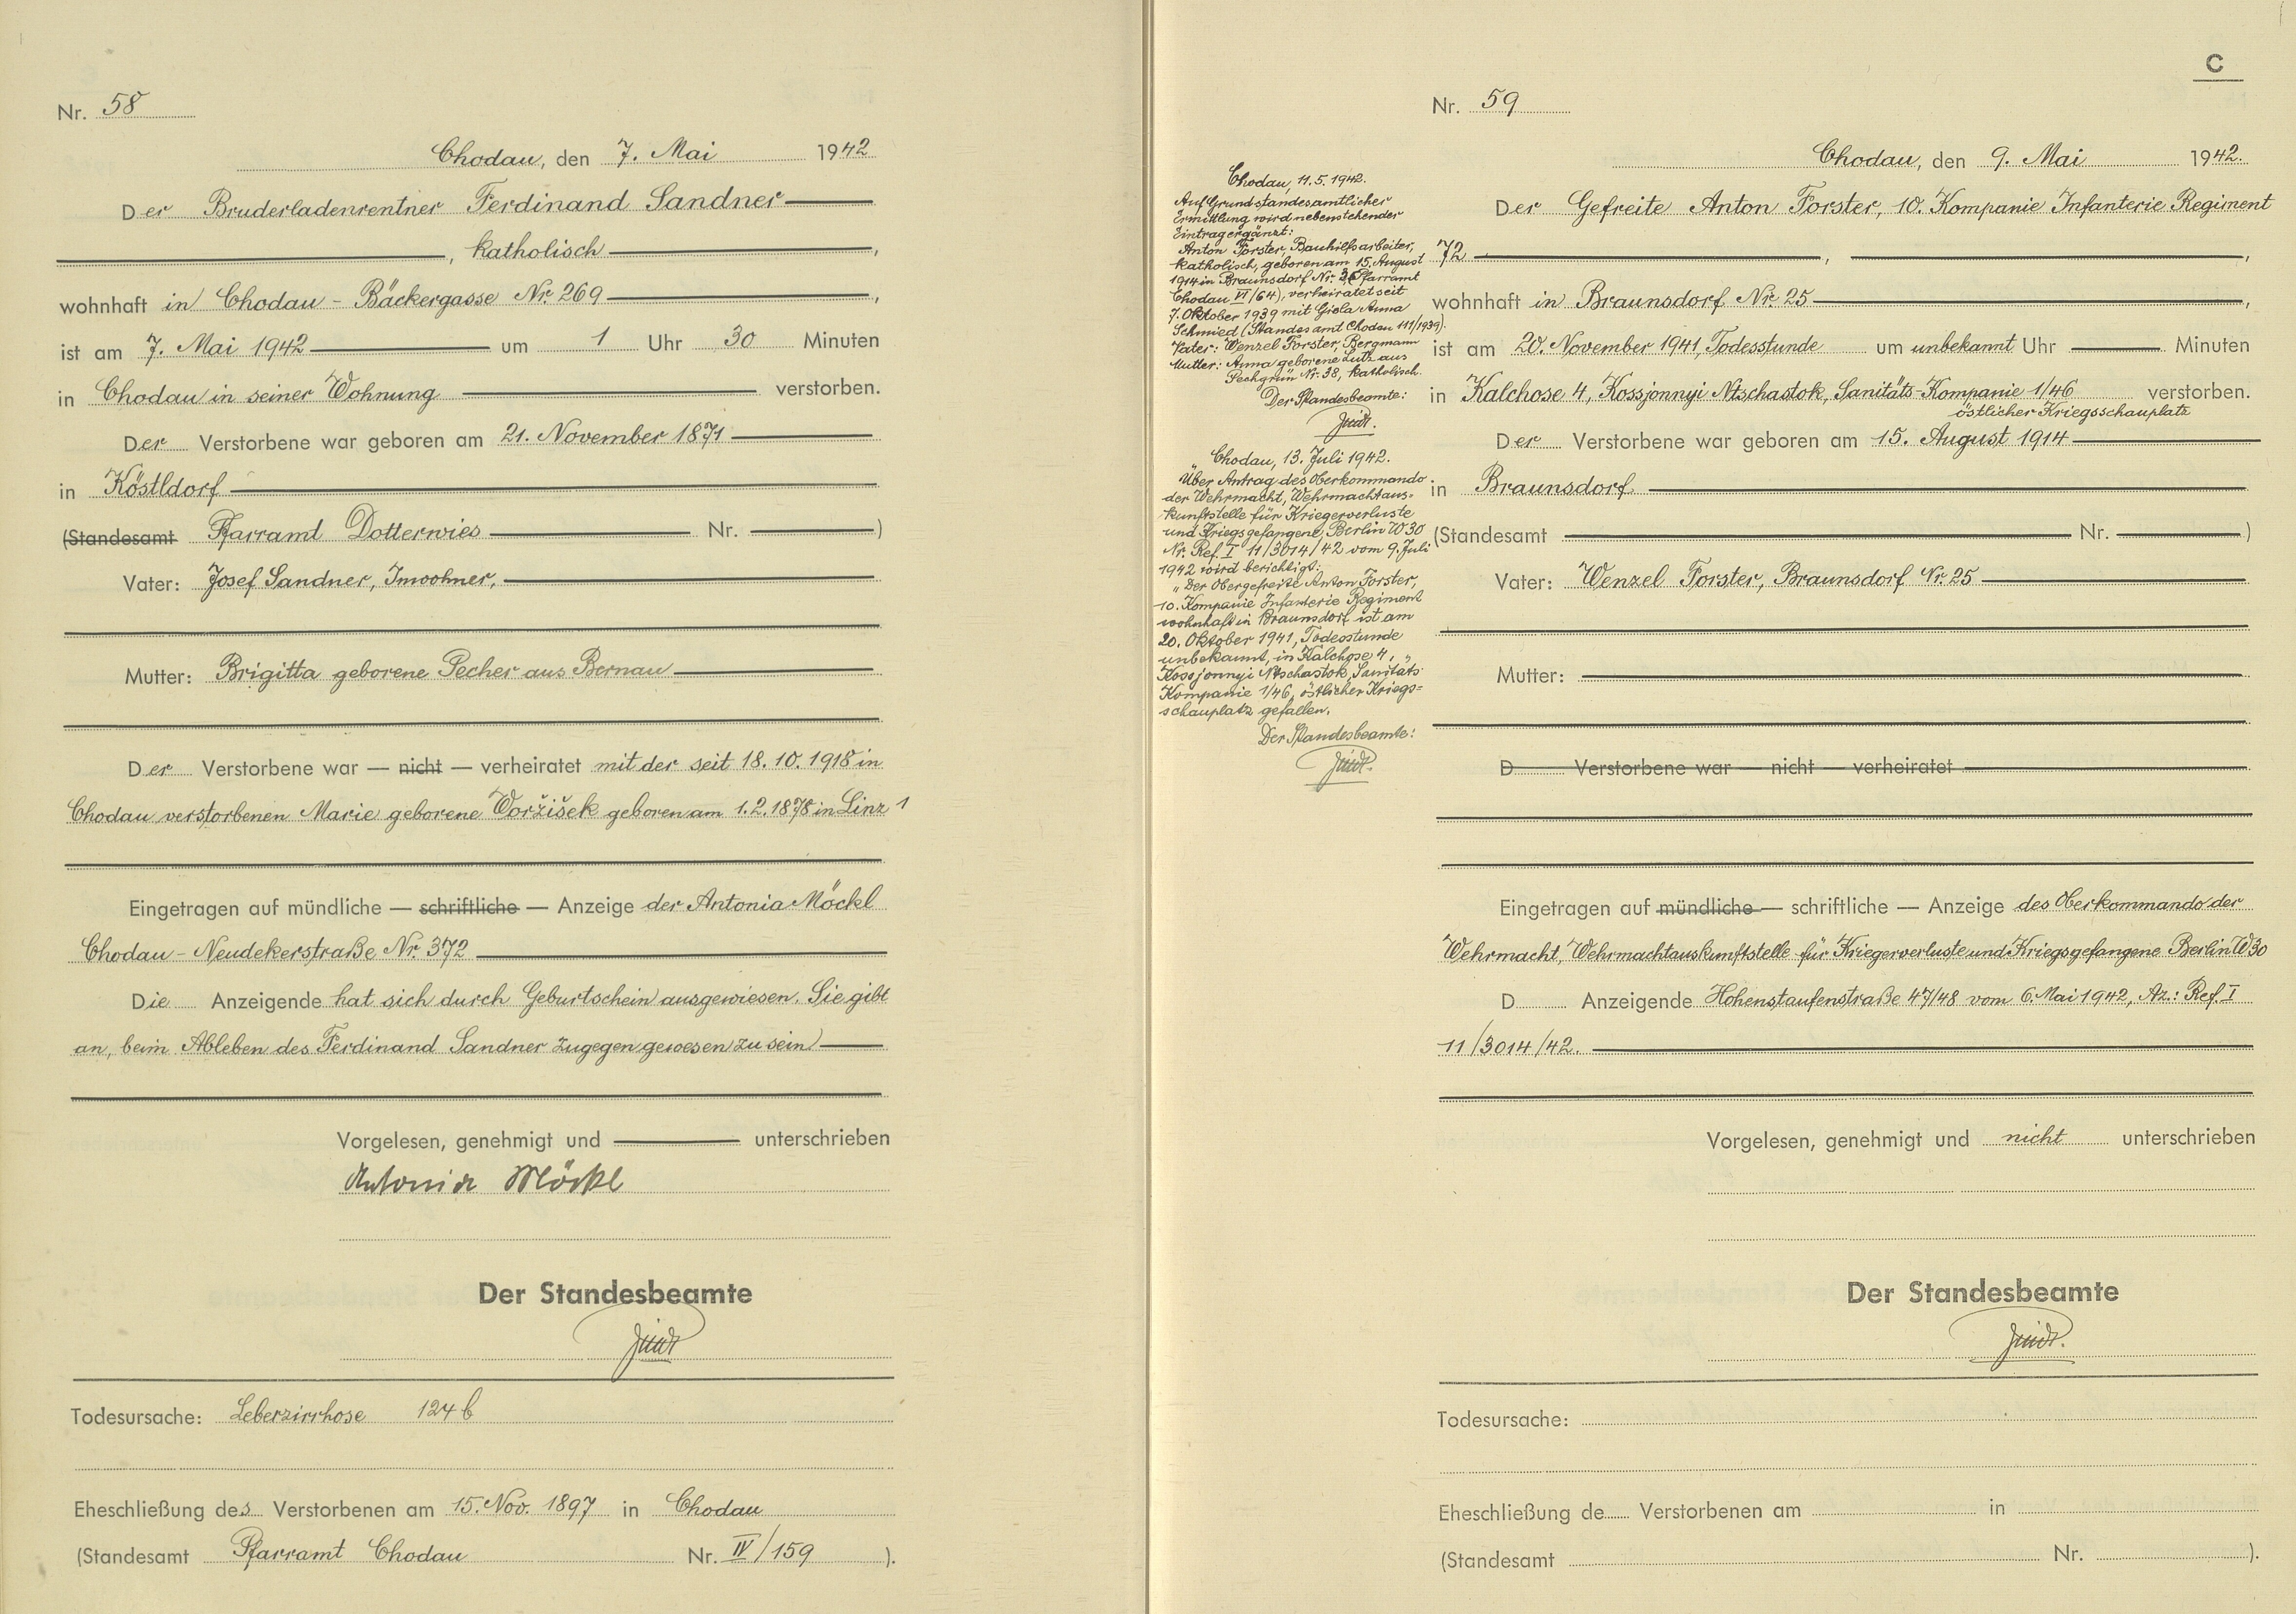 Nr. 58
Chodau, den 7. Mai 1942
Der Bruderladenrentner Ferdinand Sandner
, katholisch ,
wohnhaft in Chodau - Bäckergasse Nr. 269 ,
ist am 7. Mai 1942 um 1 Uhr 30 Minuten
in Chodau in seiner Wohnung verstorben.
Der Verstorbene war geboren am 21. November 1871
in Köstldorf
(Standesamt Pfarramt Dotterwies Nr. )
Vater: Josef Sandner, Inwohner,
Mutter: Brigitta geborene Pecher aus Bernau
Der Verstorbene war — nicht — verheiratet mit der seit 18.10.1918 in
Chodau verstorbenen Marie geborene Woržišek geboren am 1.2.1878 in Linz 1
Eingetragen auf mündliche — schriftliche — Anzeige der Antonia Möckl
Chodau - Neudekerstraße Nr. 372
Die Anzeigende hat sich durch Geburtschein ausgewiesen. Sie gibt
an, beim Ableben des Ferdinand Sandner zugegen gewesen zu sein
Vorgelesen, genehmigt und unterschrieben
Antonia Möckl
Der Standesbeamte
Todesursache: Leberzirrhose 124 b
Eheschließung des Verstorbenen am 15. Nov. 1897 in Chodau
(Standesamt Pfarramt Chodau Nr. IV/159 ).
C
Nr. 59
Chodau, den 9. Mai 1942.
Der Gefreite Anton Forster, 10. Kompanie Infanterie Regiment
72 , ,
wohnhaft in Braunsdorf Nr. 25 ,
ist am 20. November 1941, Todesstunde um unbekannt Uhr Minuten
in Kalchose 4, Kossjonnyi Ntschastok, Sanitäts-Kompanie 1/46 verstorben.
östlicher Kriegsschauplatz
Der Verstorbene war geboren am 15. August 1914
in Braunsdorf
(Standesamt Nr. )
Vater: Wenzel Forster, Braunsdorf Nr. 25
Mutter:
D Verstorbene war — nicht — verheiratet
Eingetragen auf mündliche — schriftliche — Anzeige des Oberkommando der
Wehrmacht, Wehrmachtauskunftstelle für Kriegerverluste und Kriegsgefangene Berlin W 30
D Anzeigende Hohenstaufenstraße 47/48 vom 6. Mai 1942, Az.: Ref. I
11/3014/42.
Vorgelesen, genehmigt und nicht unterschrieben
Der Standesbeamte
Todesursache:
Eheschließung de Verstorbenen am in
(Standesamt Nr. ).
Chodau, 11.5.1942.
Auf Grund standesamtlicher
Ermittlung wird nebenstehender
Eintrag ergänzt:
Anton Forster, Bauhilfsarbeiter,
katholisch, geboren am 15. August
1914 in Braunsdorf Nr. Pfarramt
Chodau VI/64), verheiratet seit
7. Oktober 1939 mit Gisla Anna
Schmied (Standesamt Chodau 111/1939).
Vater: Wenzel Forster, Bergmann
Mutter: Anna geborene Lutz aus
Pechgrün Nr. 38, katholisch.
Der Standesbeamte:
Chodau, 13. Juli 1942.
Über Antrag des Oberkommando
der Wehrmacht, Wehrmachtaus-
kunftstelle für Kriegerverluste
und Kriegsgefangene, Berlin W 30
Nr. Ref. I 11/3014/42 vom 9. Juli
1942 wird berichtigt:
"Der Obergefreite Anton Forster,
10. Kompanie Infanterie Regiment
wohnhaft in Braunsdorf ist am
20. Oktober 1941, Todesstunde
unbekannt, in Kalchose 4,
Kossjonnyi Ntschastok Sanitäts
Kompanie 1/46, östlicher Kriegs-
schauplatz gefallen.
Der Standesbeamte: